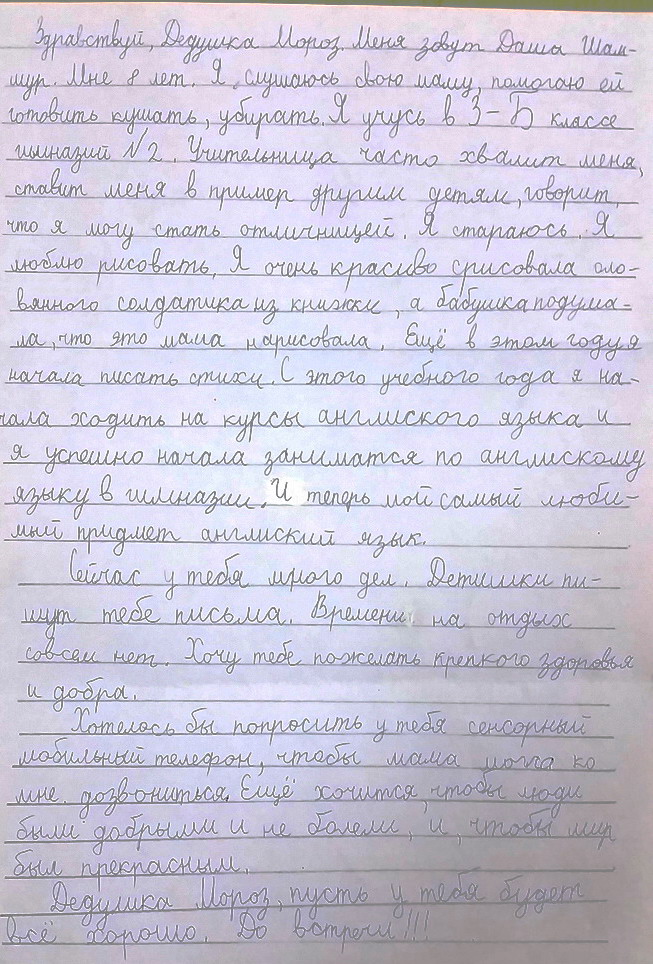 Здравствуй, Дедушка Мороз. Меня зовут Даша Шам-
мур. Мне 8 лет. Я слушаюсь свою маму, помогаю ей
готовить кушать, убирать. Я учусь в 3-Б классе
гимназий №2. Учительница часто хвалит меня,
ставит меня в пример другим детям, говорит,
что я могу стать отличницей. Я стараюсь. Я
люблю рисовать, Я очень красиво срисовала оло-
вянного солдатика из книжки, а бабушка подума-
ла, что это мама нарисовала. Ещё в этом году я
начала писать стихи. С этого учебного года я на-
чала ходить на курсы англиского языка и
я успешно начала заниматся по англискому
языку в гимназии. И теперь мой самый люби-
мый придмет англиский язык.
Сейчас у тебя много дел. Детишки пи-
шут тебе письма. Времени на отдых
совсем нет. Хочу тебе пожелать крепкого здоровья
и добра.
Хотелось бы попросить у тебя сенсорный
мобильный телефон, чтобы мама могла ко
мне дозвониться. Ещё хочится, чтобы люди
были добрыми и не болели, и, чтобы мир
был прекрасным.
Дедушка Мороз, пусть у тебя будет
всё хорошо. До встречи!!!